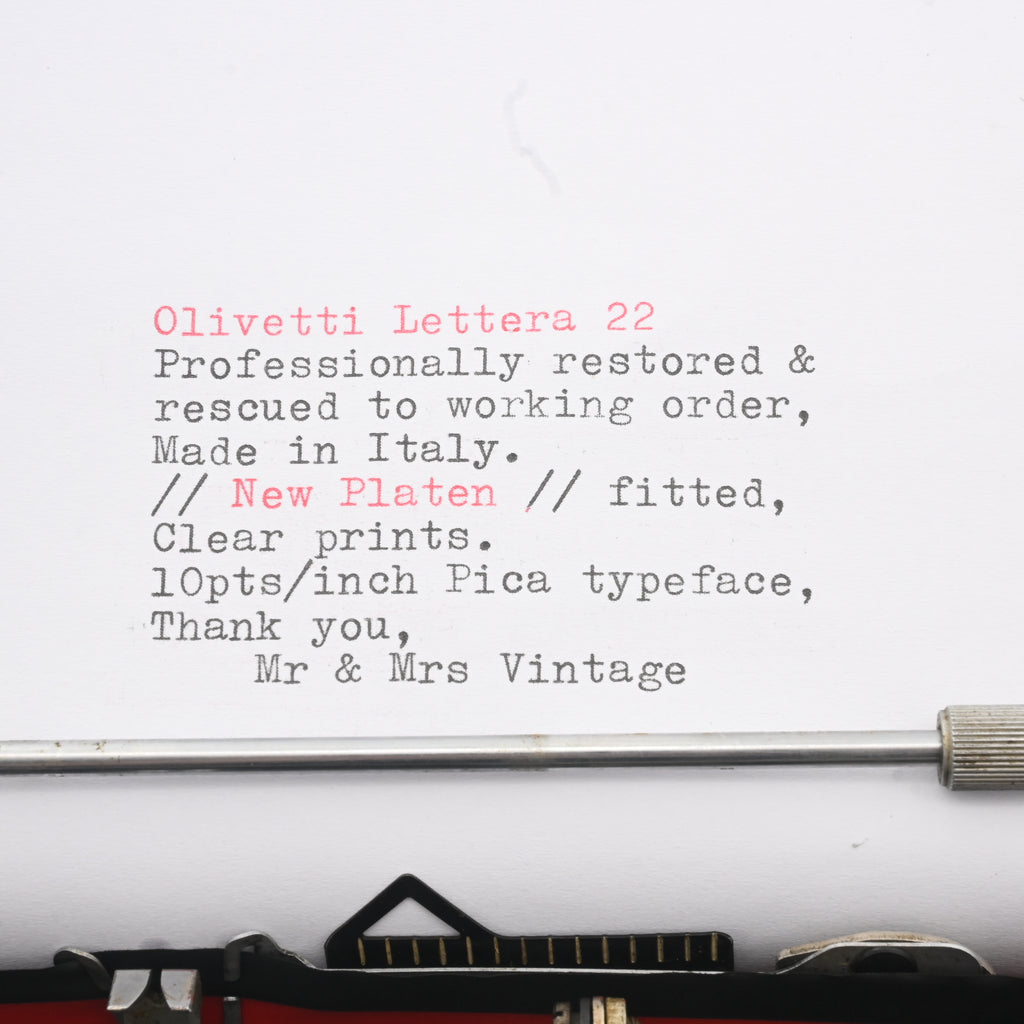 Olivetti Lettera 22
Professionally restored &
rescued to working order,
Made in Italy.
// New Platen // fitted,
Clear prints.
10pts/inch Pica typeface,
Thank you,
Mr & Mrs Vintage